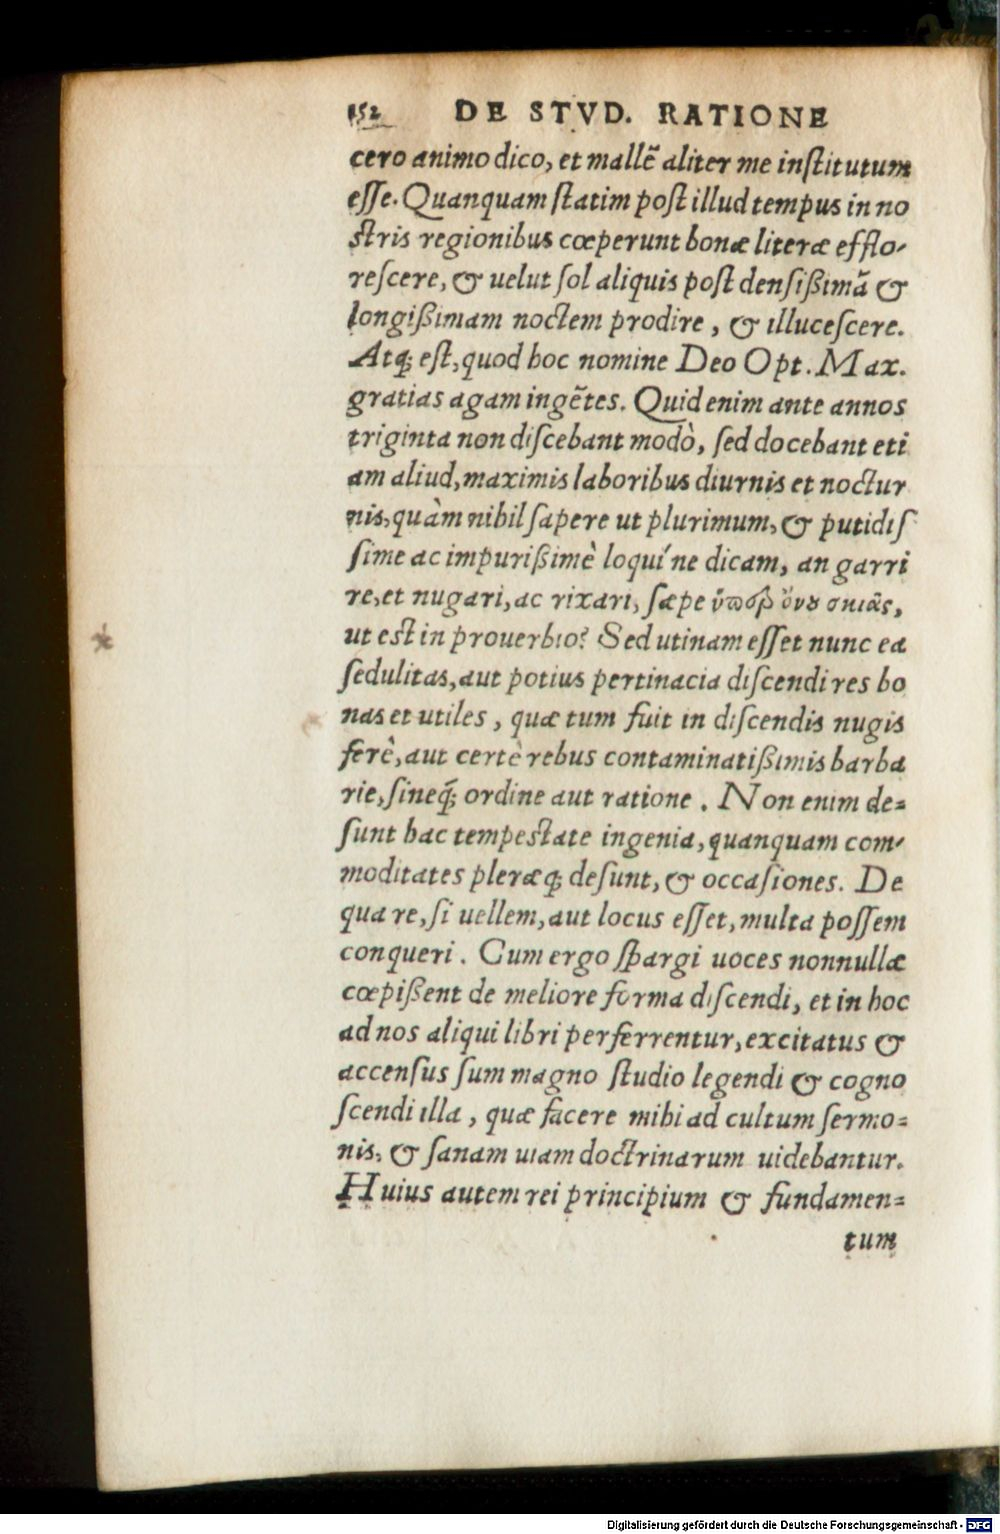 152 DE STVD. RATIONE
cero animo dico, et mallẽ aliter me inſtitutum
eſſe. Quanquam ſtatim poſt illud tempus in no
ſtris regionibus cœperunt bonæ literæ efflo-
reſcere, & uelut ſol aliquis poſt denſißimã &
longißimam noctem prodire, & illuceſcere.
Atq; eſt, quod hoc nomine Deo Opt. Max.
gratias agam ingẽtes. Quid enim ante annos
triginta non diſcebant modò, ſed docebant eti
am aliud, maximis laboribus diurnis et noctur
nis, quàm nihil ſapere ut plurimum, & putidiſ
ſime ac impurißimè loqui ́ne dicam, an garri
re, et nugari, ac rixari, ſæpe ὑπὲρ ὄνου σκιᾶς,
ut est in prouerbio? Sed utinam eſſet nunc ea
ſedulitas, aut potius pertinacia diſcendi res bo
nas et utiles, quæ tum fuit in diſcendis nugis
ferè, aut certè rebus contaminatißimis barba
rie, ſineq́; ordine aut ratione. Non enim de=
ſunt hac tempestate ingenia, quanquam com-
moditates pleræq; deſunt, & occaſiones. De
qua re, ſi uellem, aut locus eſſet, multa poſſem
conqueri. Cum ergo ſpargi uoces nonnullæ
cœpißent de meliore forma diſcendi, et in hoc
ad nos aliqui libri perferrentur, excitatus &
accenſus ſum magno ſtudio legendi & cogno
ſcendi illa, quæ facere mihi ad cultum ſermo=
nis, & ſanam uiam doctrinarum uidebantur.
Huius autem rei principium & fundamen=
tum
Digitalisierung gefördert durch die Deutsche Forschungsgemeinschaft - DFG